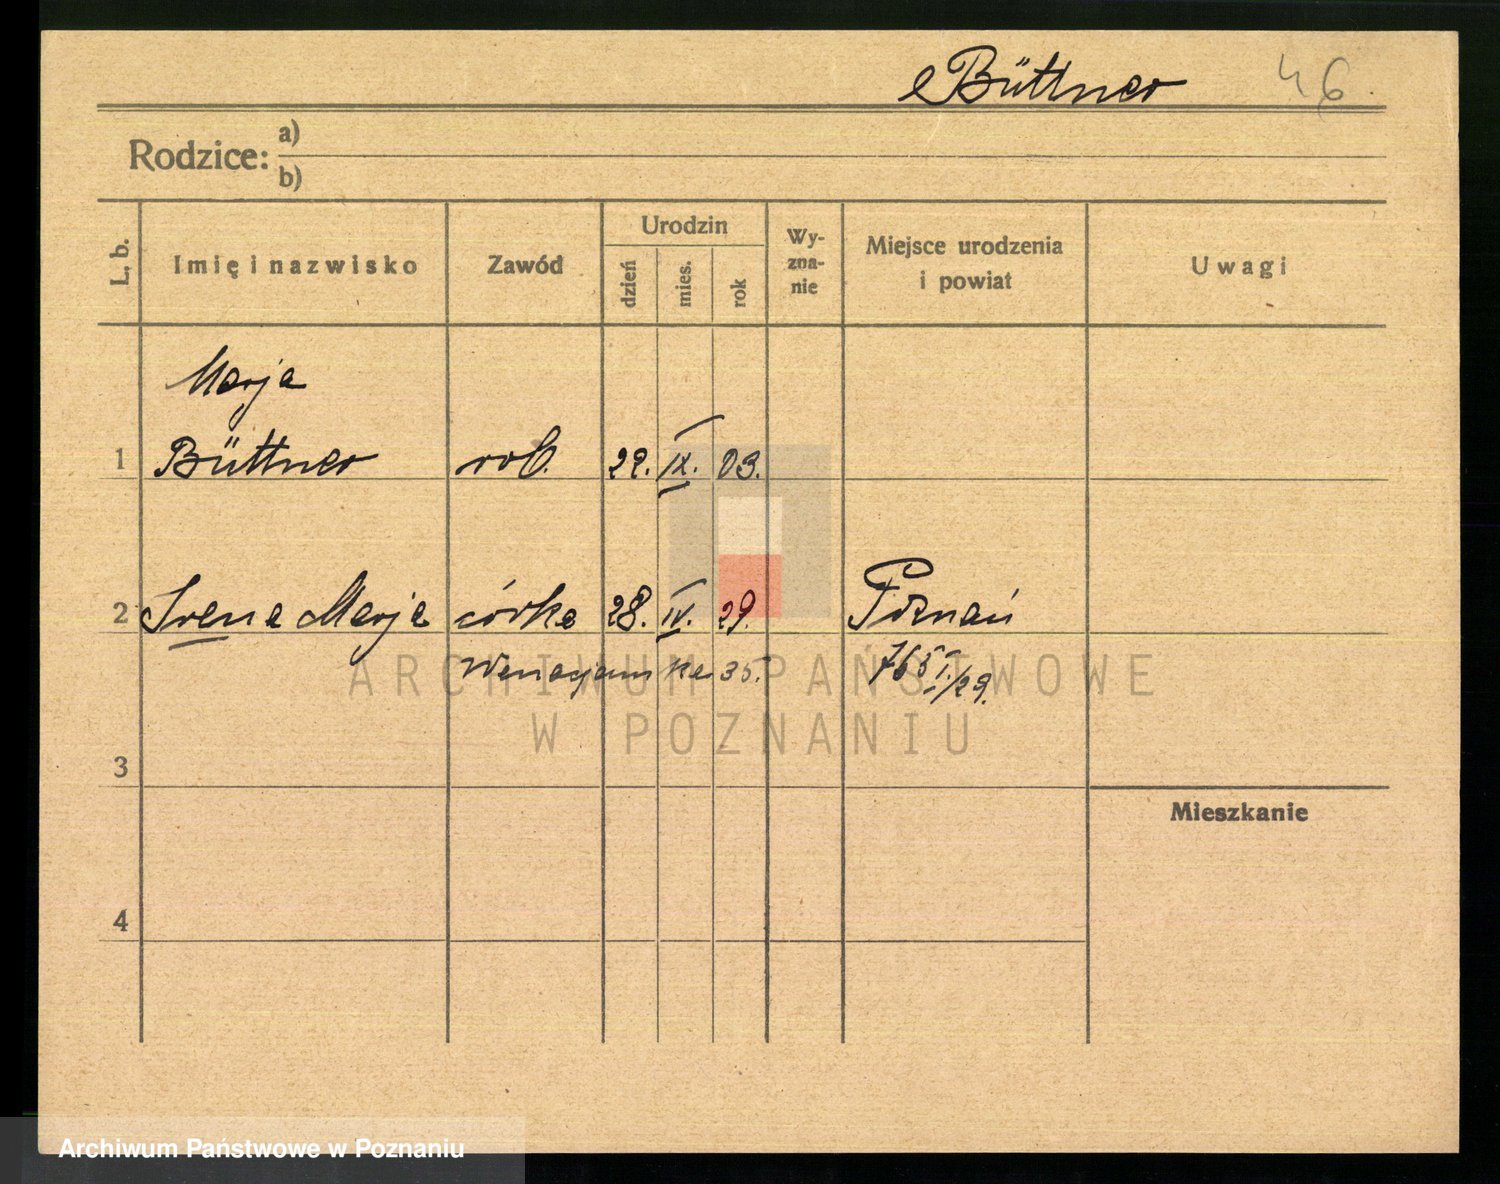 Büttner 46
Rodzice: a)
b)
L. b. Imię i nazwisko Zawód Urodzin dzień mies. rok Wy-zna-nie Miejsce urodzenia i powiat Uwagi
Marja
1 Büttner rob. 22. IX. 03.
2 Irena Marja córka 28. IV. 29. Poznań
35. 765 I/29.
ARCHIWUM PAŃSTWOWE
W POZNANIU
3
Mieszkanie
4
Archiwum Państwowe w Poznaniu